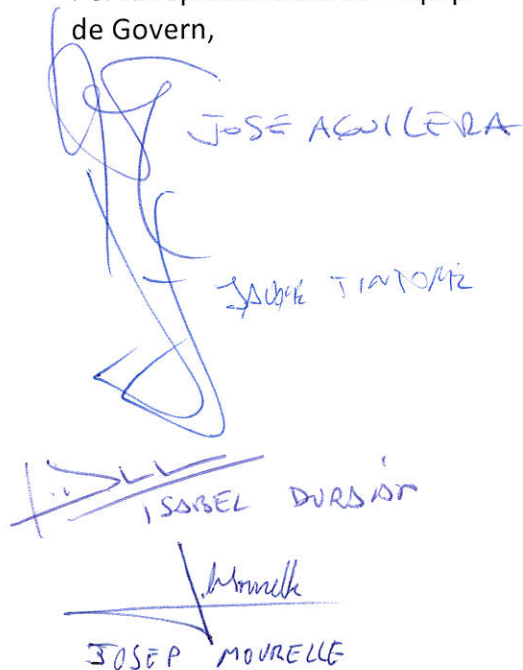 de Govern,
JOSE AGUILERA
JAUME TINTORÉ
ISABEL DURBÁN
J. Mourelle
JOSEP MOURELLE